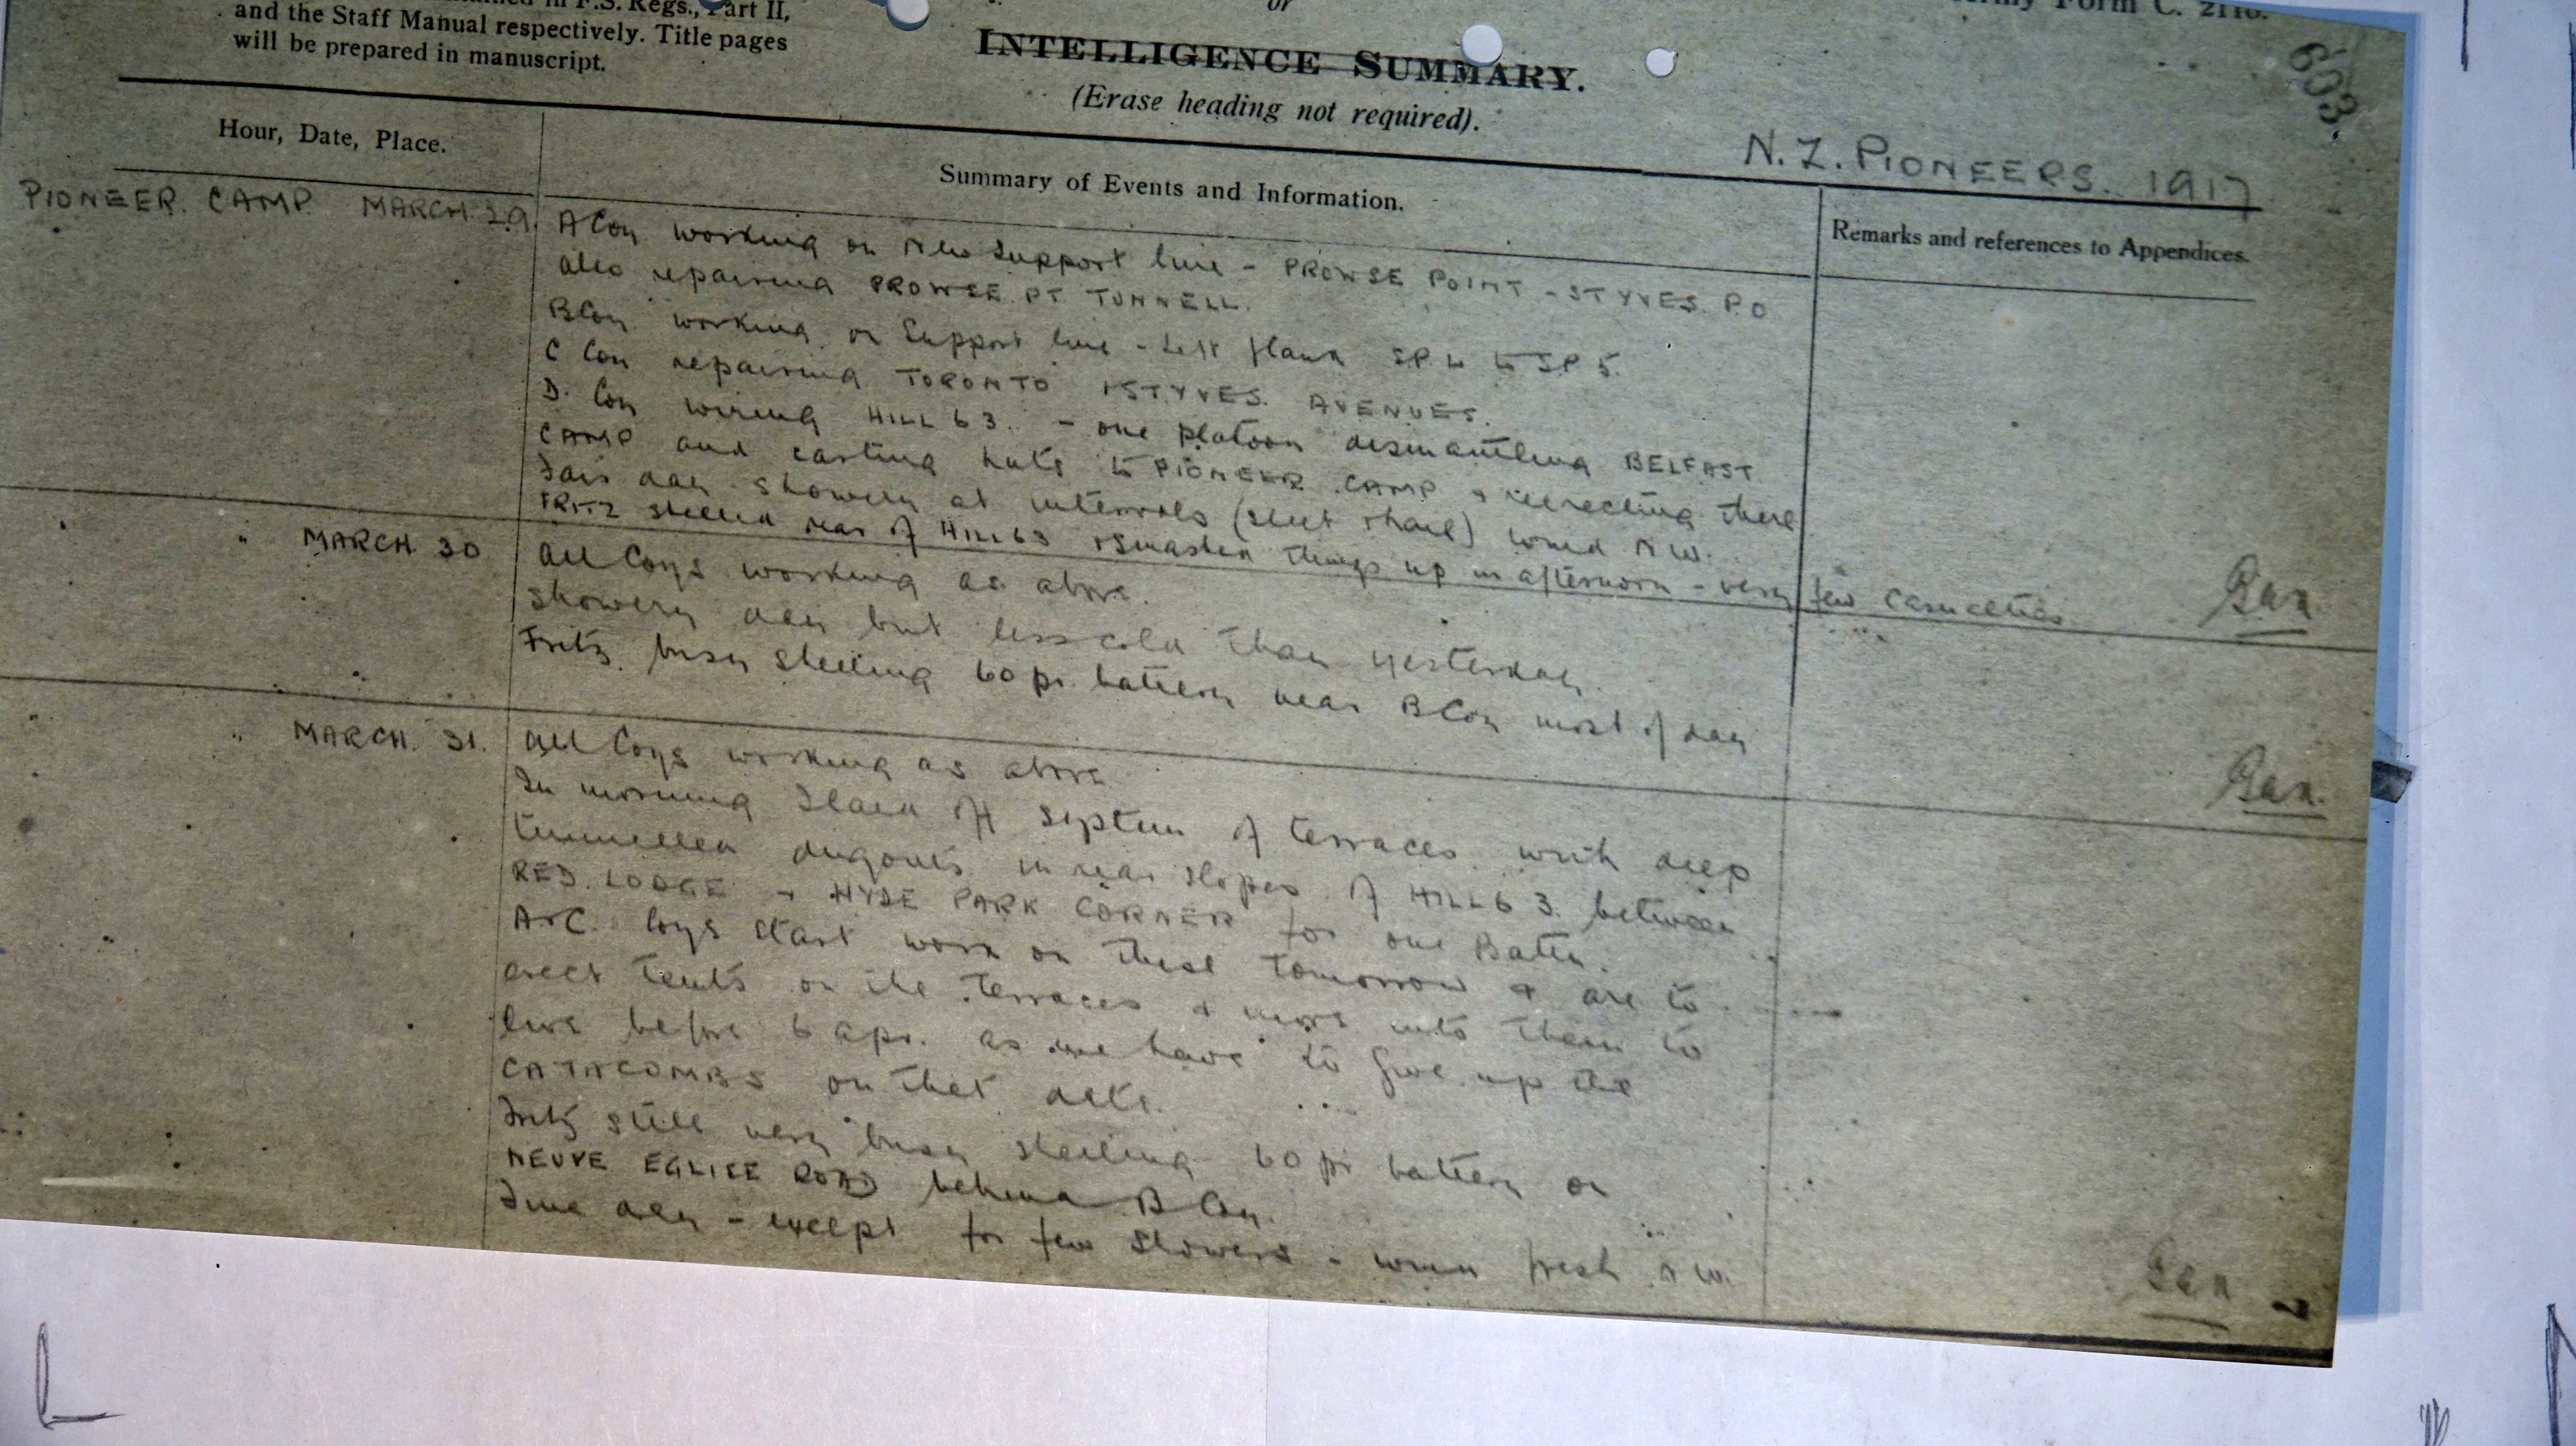 in F.S. Regs., Part II,
and the Staff Manual respectively. Title pages
will be prepared in manuscript.
or
INTELLIGENCE SUMMARY.
(Erase heading not required).
Army Form C. 2118.
603.
N.Z. PIONEERS. 1917
Hour, Date, Place.
Summary of Events and Information.
Remarks and references to Appendices.
PIONEER CAMP MARCH 29.
A Coy working on New Support line - PROWSE POINT - ST YVES. P.O
also repairing PROWSE PT TUNNELL.
B Coy working on Support line - left flank SP 4 to SP 5.
C Coy repairing TORONTO + ST YVES AVENUES.
D. Coy wiring HILL 63. - one platoon dismantling BELFAST
CAMP and carting huts to PIONEER CAMP & reerecting there
Fair day showery at intervals (sleet + hail) wind NW.
FRITZ shelled rear of HILL 63 + smashed things up in afternoon - very few casualties
" MARCH 30
All Coys working as above.
Showery day but less cold than yesterday.
Fritz busy shelling 60 pr. battery near B Coy most of day
" MARCH. 31.
All Coys working as above
In morning I laid off system of terraces with deep
tunnelled dugouts in rear slopes of HILL 63. between
RED. LODGE + HYDE PARK CORNER for one Battn.
A + C. Coys start work on these tomorrow & are to
erect tents on the terraces & move into them to
live before 6 apr. as we have to give up the
CATACOMBS on that date.
Fritz still very busy shelling 60 pr battery on
NEUVE EGLISE ROAD behind B Coy.
Fine day - except for few showers - wind fresh NW.